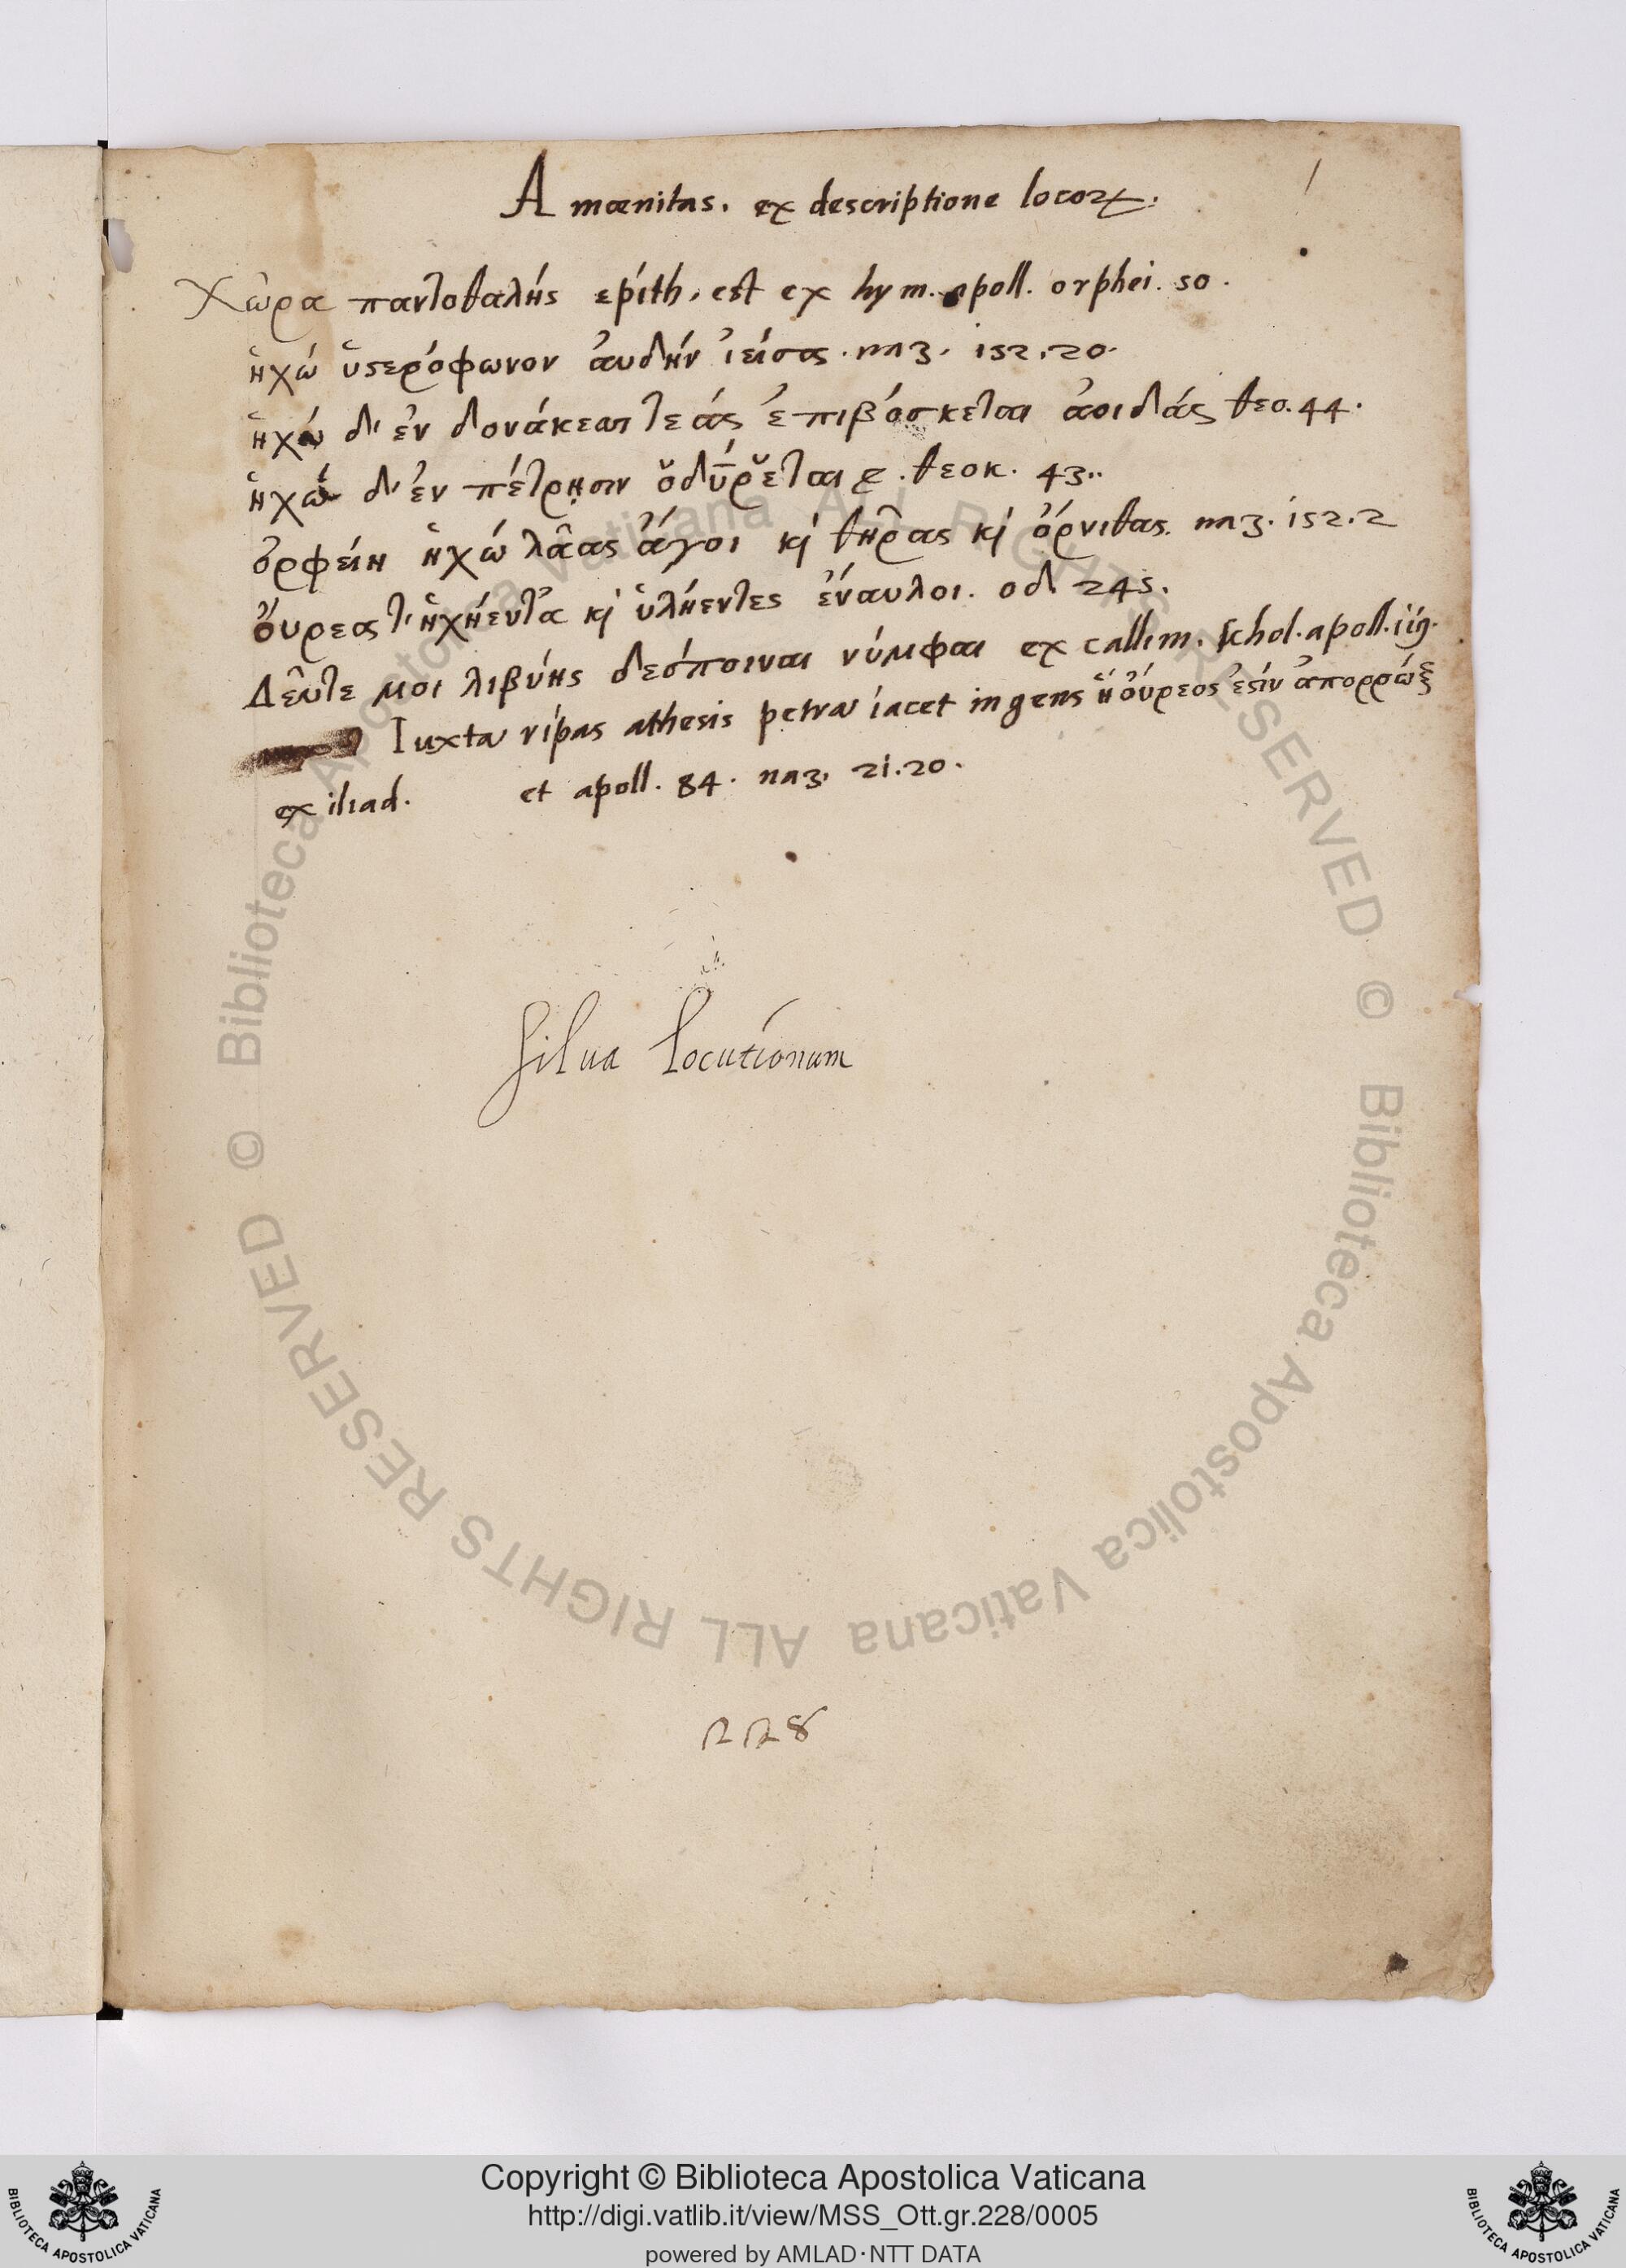 1
Amœnitas. ex descriptione locoꝝ.
Χῶρα παντοθαλής epith. est ex hym. apoll. orphei. 50.
ἠχώ ὑϛερόφωνον ἀυδήν ἰεῖσα. naz. 152.20.
ἠχώ δ' ἐν δονάκεσσι τεάς ἐπιβόσκεται ἀοιδάς θεο. 44.
ἠχώ δ' ἐν πέτρῃσιν ὀδύρεται θεοκ. 43.
ὀρφείη ἠχώ λᾶας ἄγοι κ̀ θῆρας κ̀ ὄρνιθας. naz. 152.2
ὄυρεα τ' ἠχήεντα κ̀ ὑλήεντες ἔναυλοι. οδ 245.
Δεῦτε μοι λιβύης δεσποιναι νύμφαι ex callim. schol. apoll.
Iuxta ripas athesis petra iacet ingens ἠὒ ὄυρεος ἐϛίν ἀπορρώξ
ex iliad. et apoll. 84. naz. 21.20.
Silua Locutionum
228
© Biblioteca Apostolica Vaticana ALL RIGHTS RESERVED © Biblioteca Apostolica Vaticana ALL RIGHTS RESERVED
Copyright © Biblioteca Apostolica Vaticana
http://digi.vatlib.it/view/MSS_Ott.gr.228/0005
powered by AMLAD·NTT DATA
BIBLIOTECA APOSTOLICA VATICANA
BIBLIOTECA APOSTOLICA VATICANA